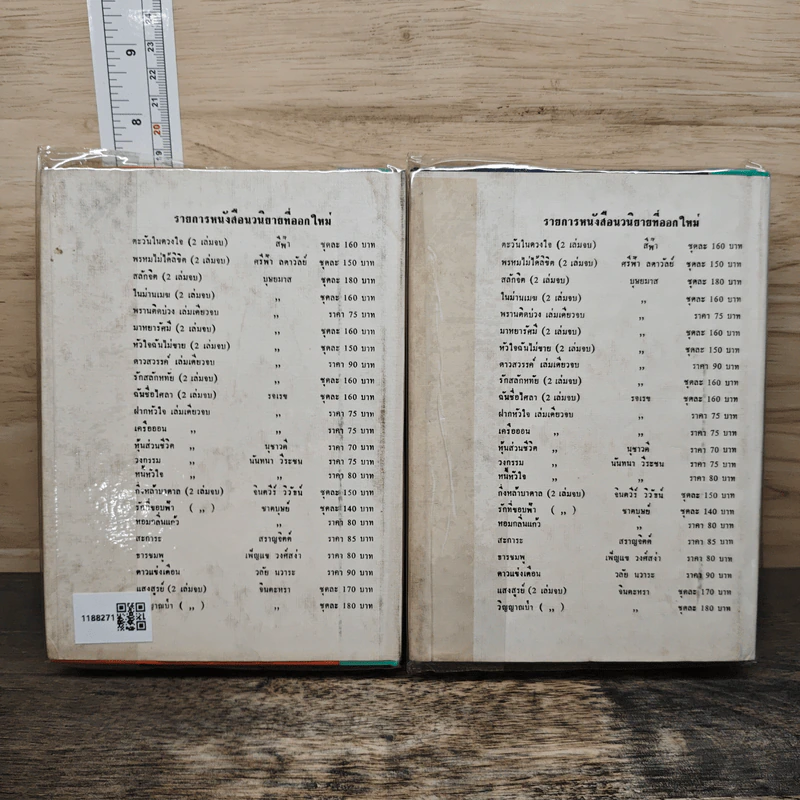 9
24
23
22
21
8
20
19
รายการหนังสือนวนิยายที่ออกใหม่
ตะวันในดวงใจ (2 เล่มจบ) สีฟ้า ชุดละ 160 บาท
พรหมไม่ได้ลิขิต (2 เล่มจบ) ศรีฟ้า ลดาวัลย์ ชุดละ 150 บาท
สลักจิต (2 เล่มจบ) บุษยมาส ชุดละ 180 บาท
ในม่านเมฆ (2 เล่มจบ) ,, ชุดละ 160 บาท
พรานติดบ่วง เล่มเดียวจบ ,, ราคา 75 บาท
มาทยารัศมี (2 เล่มจบ) ,, ชุดละ 160 บาท
หัวใจฉันไม่ขาย (2 เล่มจบ) ,, ชุดละ 150 บาท
ดาวสวรรค์ เล่มเดียวจบ ,, ราคา 90 บาท
รักสลักหทัย (2 เล่มจบ) ,, ชุดละ 160 บาท
ฉันชื่อไศลา (2 เล่มจบ) รจเรข ชุดละ 160 บาท
ฝากหัวใจ เล่มเดียวจบ ,, ราคา 75 บาท
เครือออน ,, ราคา 75 บาท
หุ้นส่วนชีวิต ,, นุชาวดี ราคา 70 บาท
วงกรรม ,, นันทนา วีระชน ราคา 75 บาท
หนี้หัวใจ ,, ,, ราคา 80 บาท
กิ่งหล้าบาดาล (2 เล่มจบ) จินตวีร์ วิวัธน์ ชุดละ 150 บาท
รักที่ขอบฟ้า ( ,, ) ชาตบุษย์ ชุดละ 140 บาท
หอมกลิ่นแก้ว ,, ราคา 80 บาท
สะการะ สราญจิตต์ ราคา 85 บาท
ธารชมพู เพ็ญแข วงศ์สง่า ราคา 80 บาท
ดาวแข่งเดือน วลัย นวาระ ราคา 90 บาท
แสงสูรย์ (2 เล่มจบ) จินตะหรา ชุดละ 170 บาท
( ,, ) ,, ชุดละ 180 บาท
1188271
รายการหนังสือนวนิยายที่ออกใหม่
ตะวันในดวงใจ (2 เล่มจบ) สีฟ้า ชุดละ 160 บาท
พรหมไม่ได้ลิขิต (2 เล่มจบ) ศรีฟ้า ลดาวัลย์ ชุดละ 150 บาท
สลักจิต (2 เล่มจบ) บุษยมาส ชุดละ 180 บาท
ในม่านเมฆ (2 เล่มจบ) ,, ชุดละ 160 บาท
พรานติดบ่วง เล่มเดียวจบ ,, ราคา 75 บาท
มาทยารัศมี (2 เล่มจบ) ,, ชุดละ 160 บาท
หัวใจฉันไม่ขาย (2 เล่มจบ) ,, ชุดละ 150 บาท
ดาวสวรรค์ เล่มเดียวจบ ,, ราคา 90 บาท
รักสลักหทัย (2 เล่มจบ) ,, ชุดละ 160 บาท
ฉันชื่อไศลา (2 เล่มจบ) รจเรข ชุดละ 160 บาท
ฝากหัวใจ เล่มเดียวจบ ,, ราคา 75 บาท
เครือออน ,, ,, ราคา 75 บาท
หุ้นส่วนชีวิต ,, นุชาวดี ราคา 70 บาท
วงกรรม ,, นันทนา วีระชน ราคา 75 บาท
หนี้หัวใจ ,, ,, ราคา 80 บาท
กิ่งหล้าบาดาล (2 เล่มจบ) จินตวีร์ วิวัธน์ ชุดละ 150 บาท
รักที่ขอบฟ้า ( ,, ) ชาตบุษย์ ชุดละ 140 บาท
หอมกลิ่นแก้ว ,, ราคา 80 บาท
สะการะ สราญจิตต์ ราคา 85 บาท
ธารชมพู เพ็ญแข วงศ์สง่า ราคา 80 บาท
ดาวแข่งเดือน วลัย นวาระ ราคา 90 บาท
แสงสูรย์ (2 เล่มจบ) จินตะหรา ชุดละ 170 บาท
วิญญาณเป่า ( ,, ) ,, ชุดละ 180 บาท